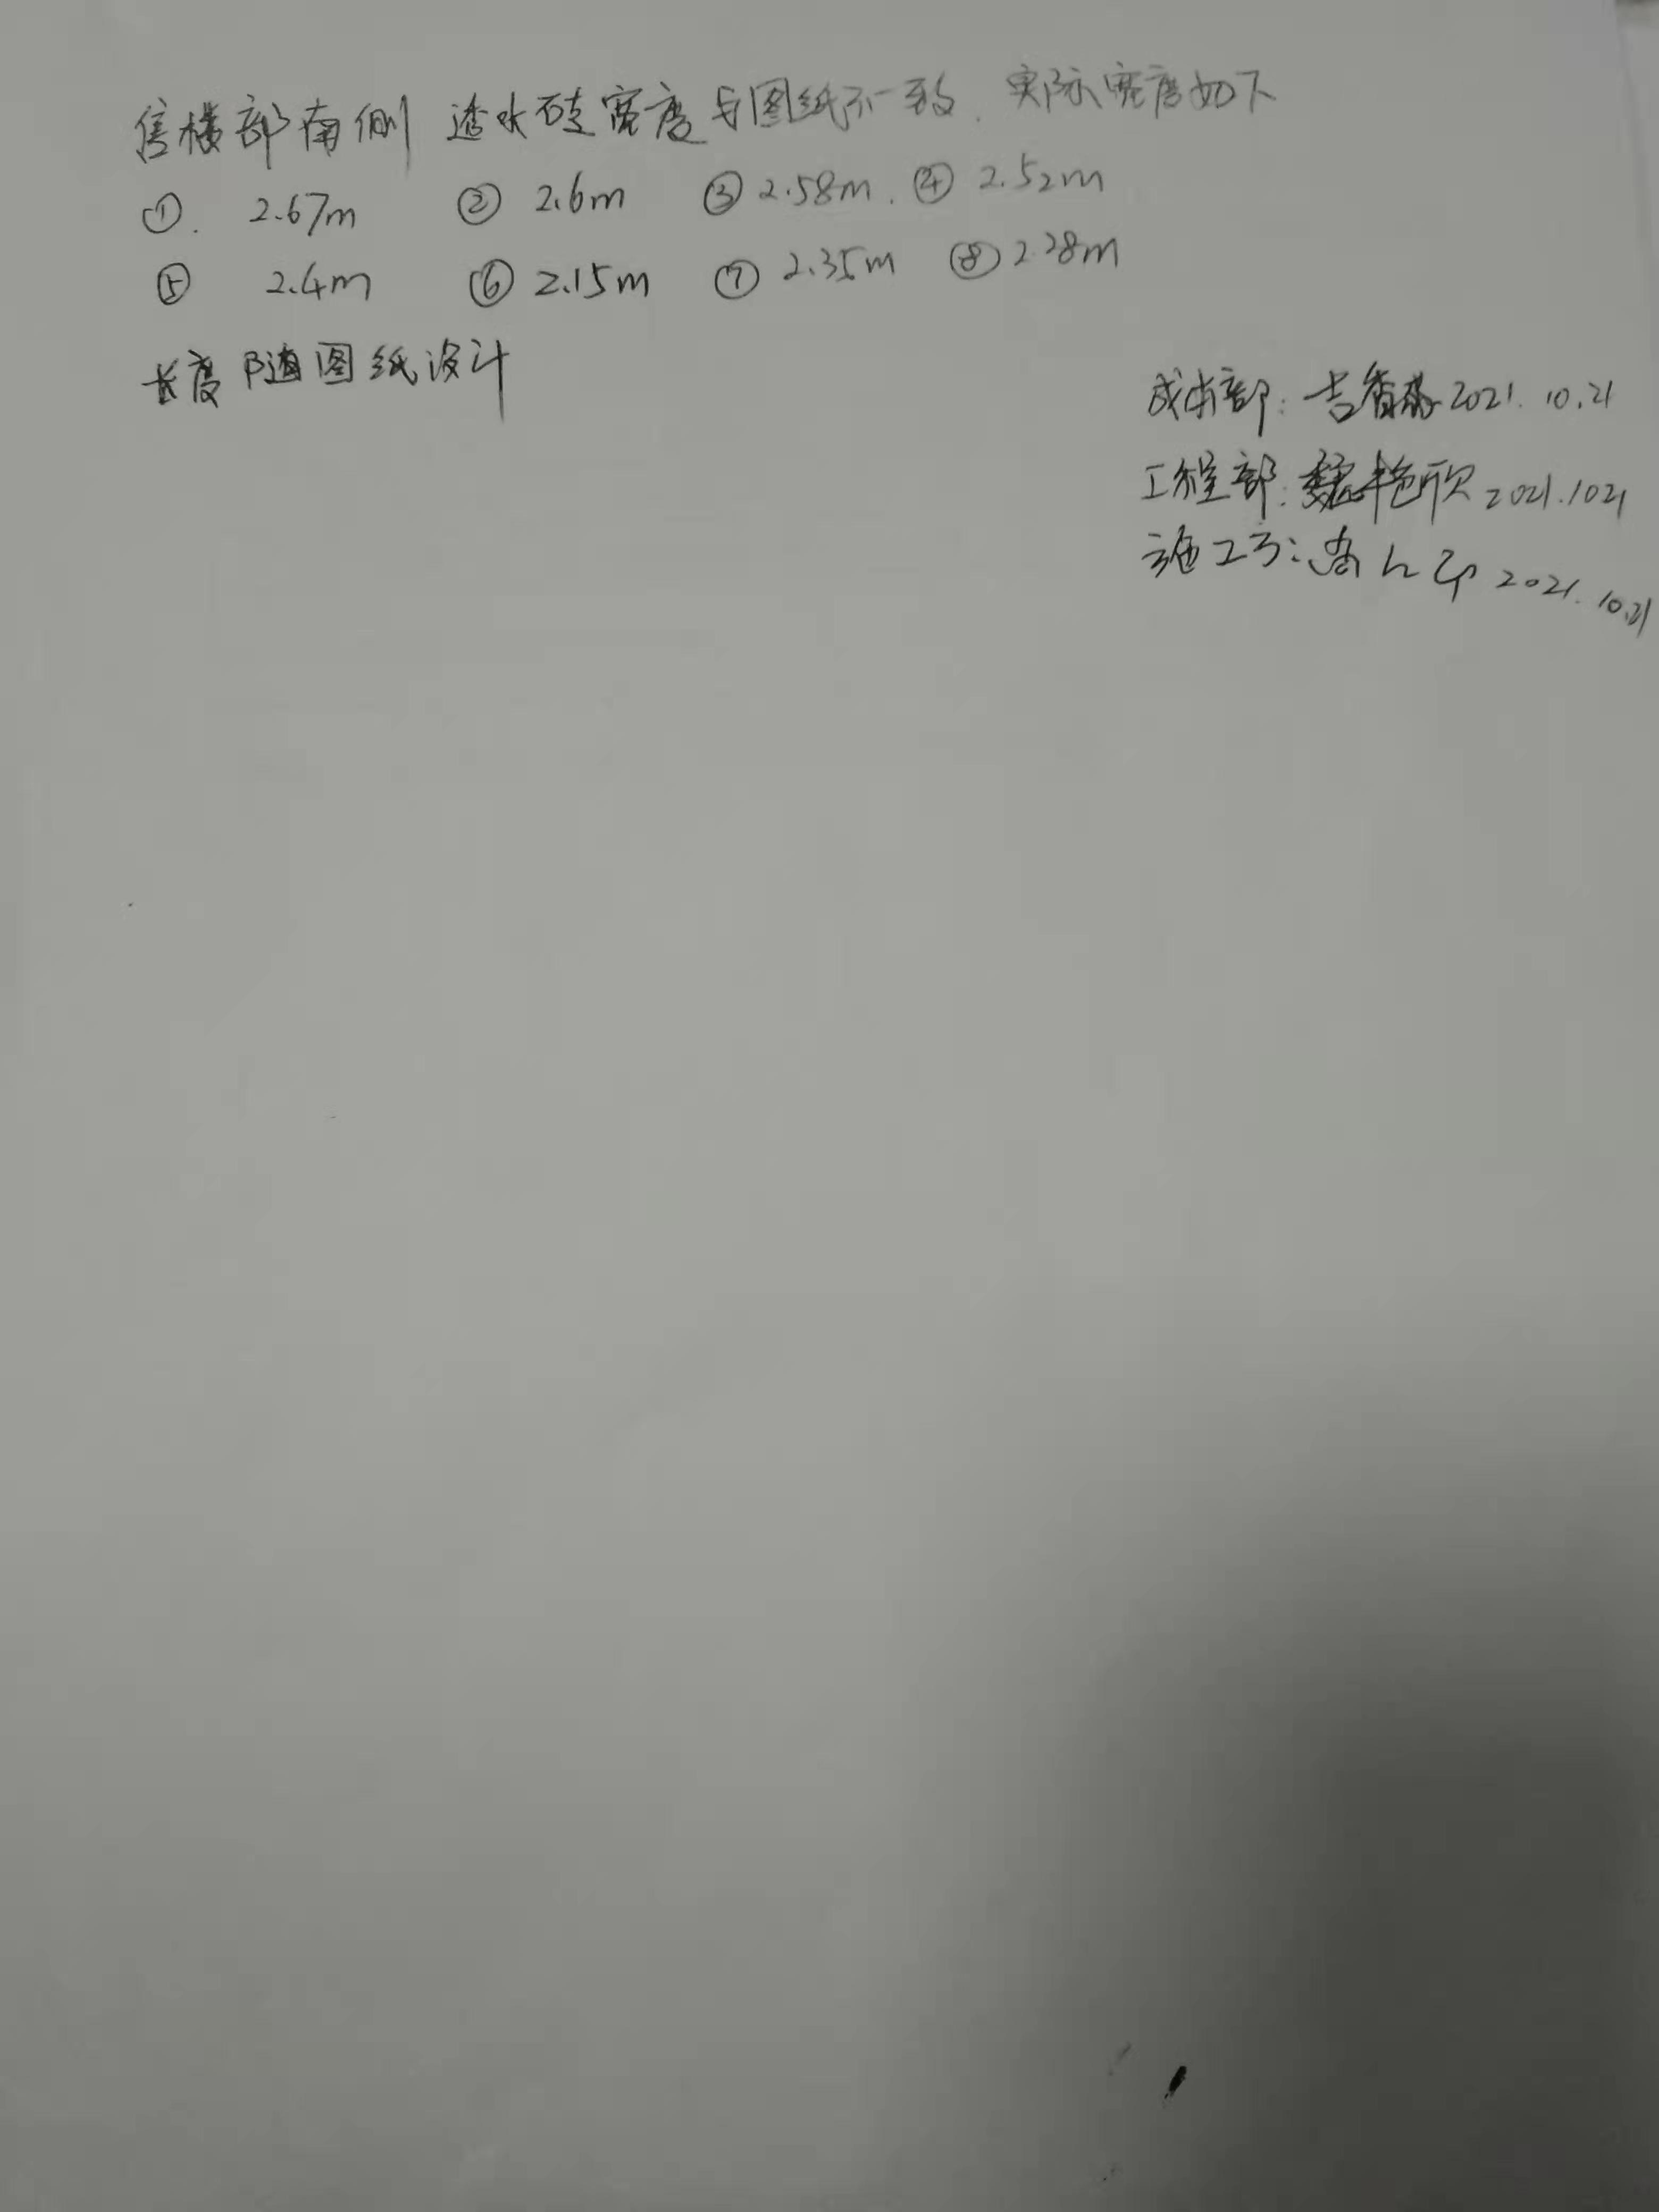 售楼部南侧 透水砖宽度与图纸不一致. 实际宽度如下
①. 2.67m ② 2.6m ③ 2.58m. ④ 2.52m
⑤ 2.4m ⑥ 2.15m ⑦ 2.35m ⑧ 2.28m
长度随图纸设计
成本部: 吉 2021.10.21
工程部: 魏艳欣 2021.1021
施工方: 2021.10.21